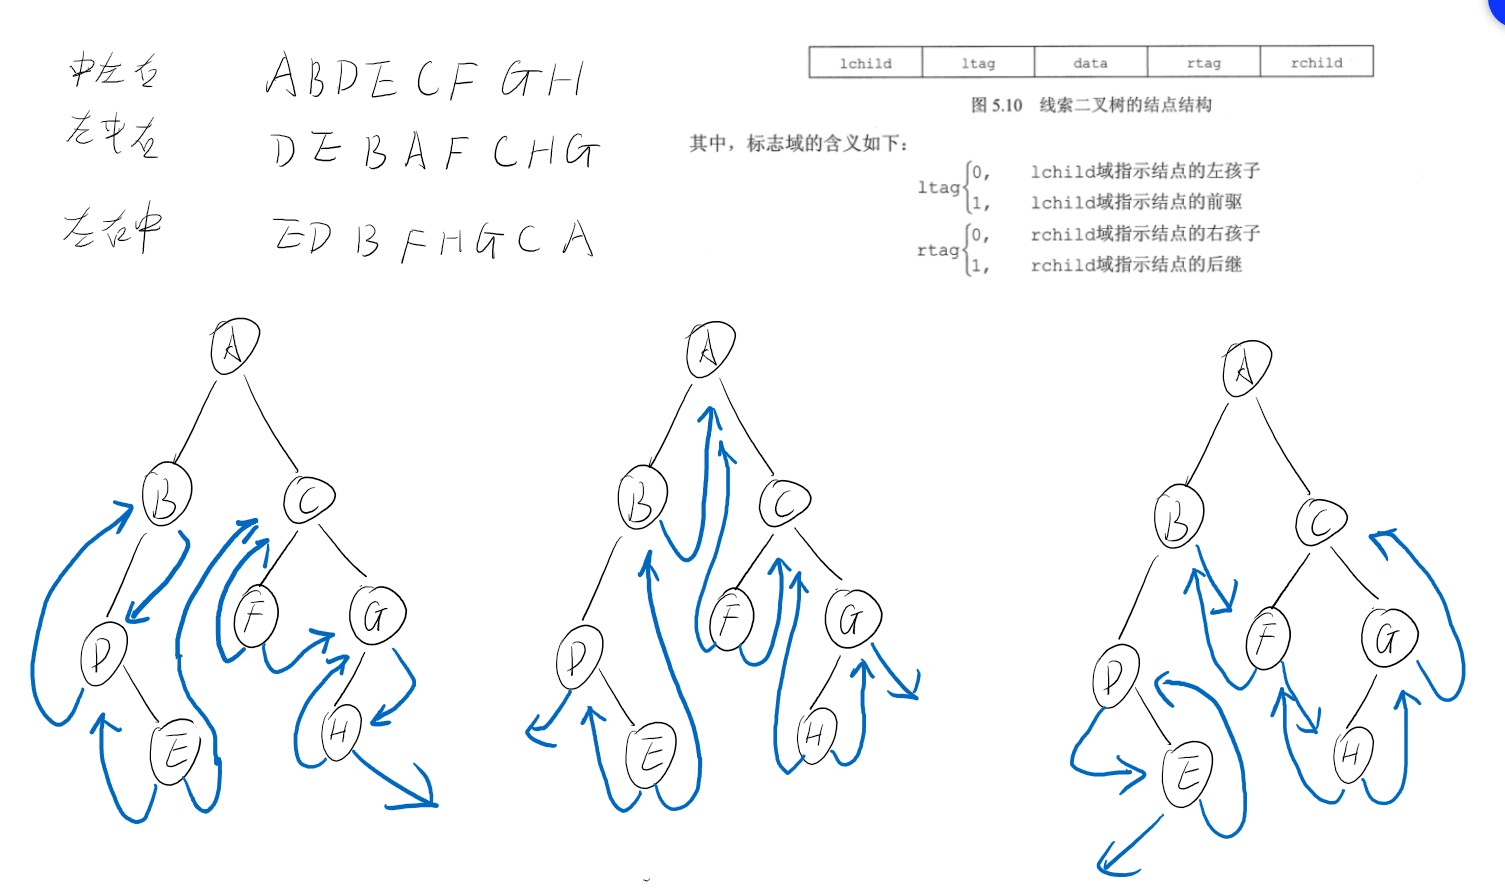 中左右 ABDECFGH
左中右 DEBAFCHG
左右中 EDBFHGCA
lchild ltag data rtag rchild
图 5.10 线索二叉树的结点结构
其中，标志域的含义如下：
ltag
0, lchild域指示结点的左孩子
1, lchild域指示结点的前驱
rtag
0, rchild域指示结点的右孩子
1, rchild域指示结点的后继
A
B C
F G
D
E H
A
B C
F G
D
E H
A
B C
F G
D
E H